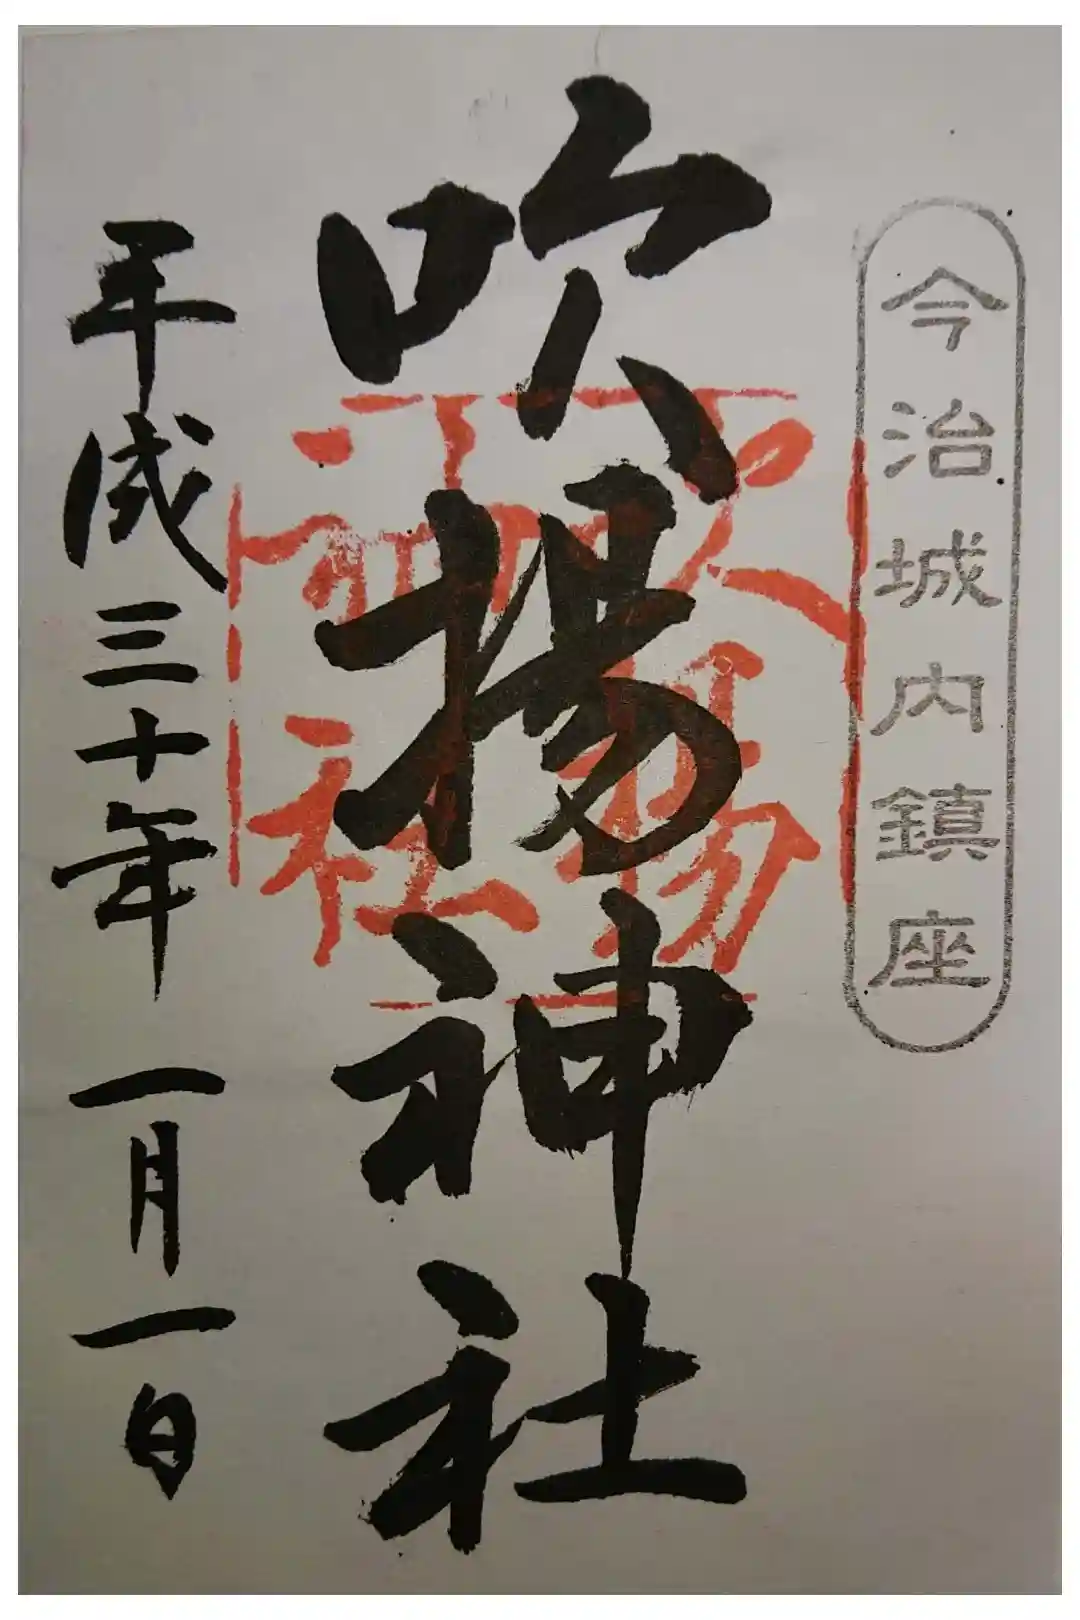 今治城内鎮座
吹揚神社
吹揚
神社
平成三十年一月一日